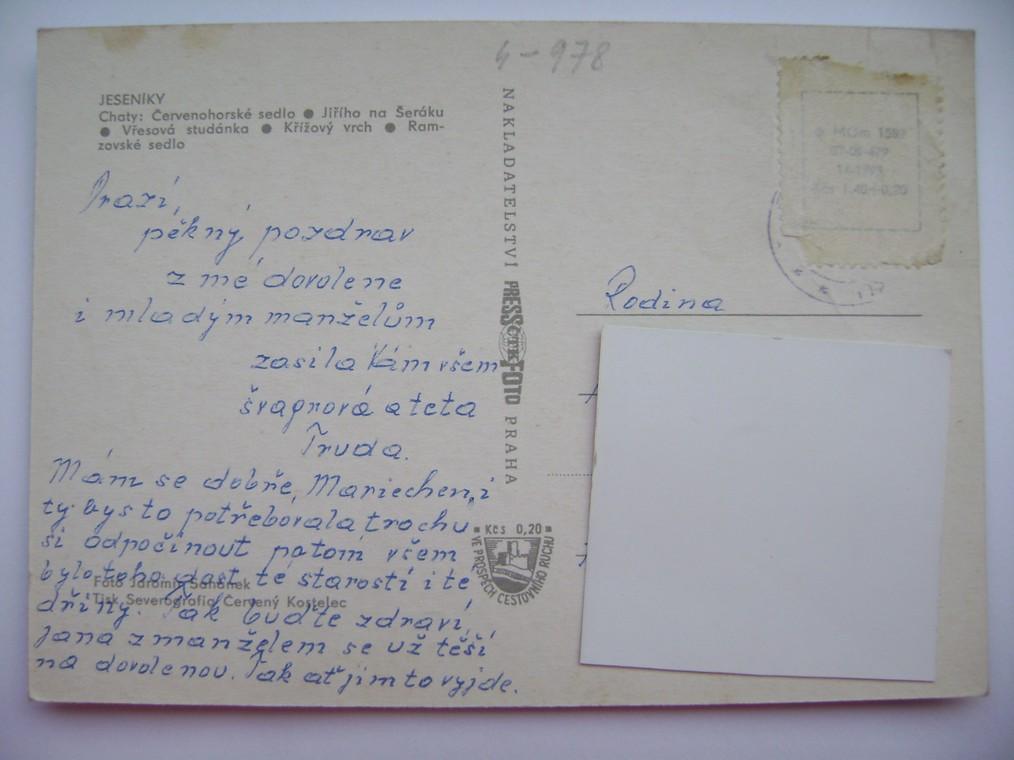 4-978
JESENÍKY
Chaty: Červenohorské sedlo ● Jiřího na Šeráku
● Vřesová studánka ● Křížový vrch ● Ram-
zovské sedlo
Drazí,
pěkný pozdrav
z mé dovolene
i mladým manželům
zasílá Vám všem
švagrová a teta
Truda.
Mám se dobře, Mariechen, i
ty bys to potřebovala trochu
si odpočinout potom všem
bylo toho dost té starostí i té
dřiny. Tak buďte zdraví,
Jana z manželem se už těší
na dovolenou. Tak ať jim to vyjde.
Foto Jaromír
Tisk Severografia Červený Kostelec
NAKLADATELSTVÍ PRESSFOTO PRAHA
ČTK
Kčs 0,20
VE PROSPĚCH CESTOVNÍHO RUCHU
Rodina